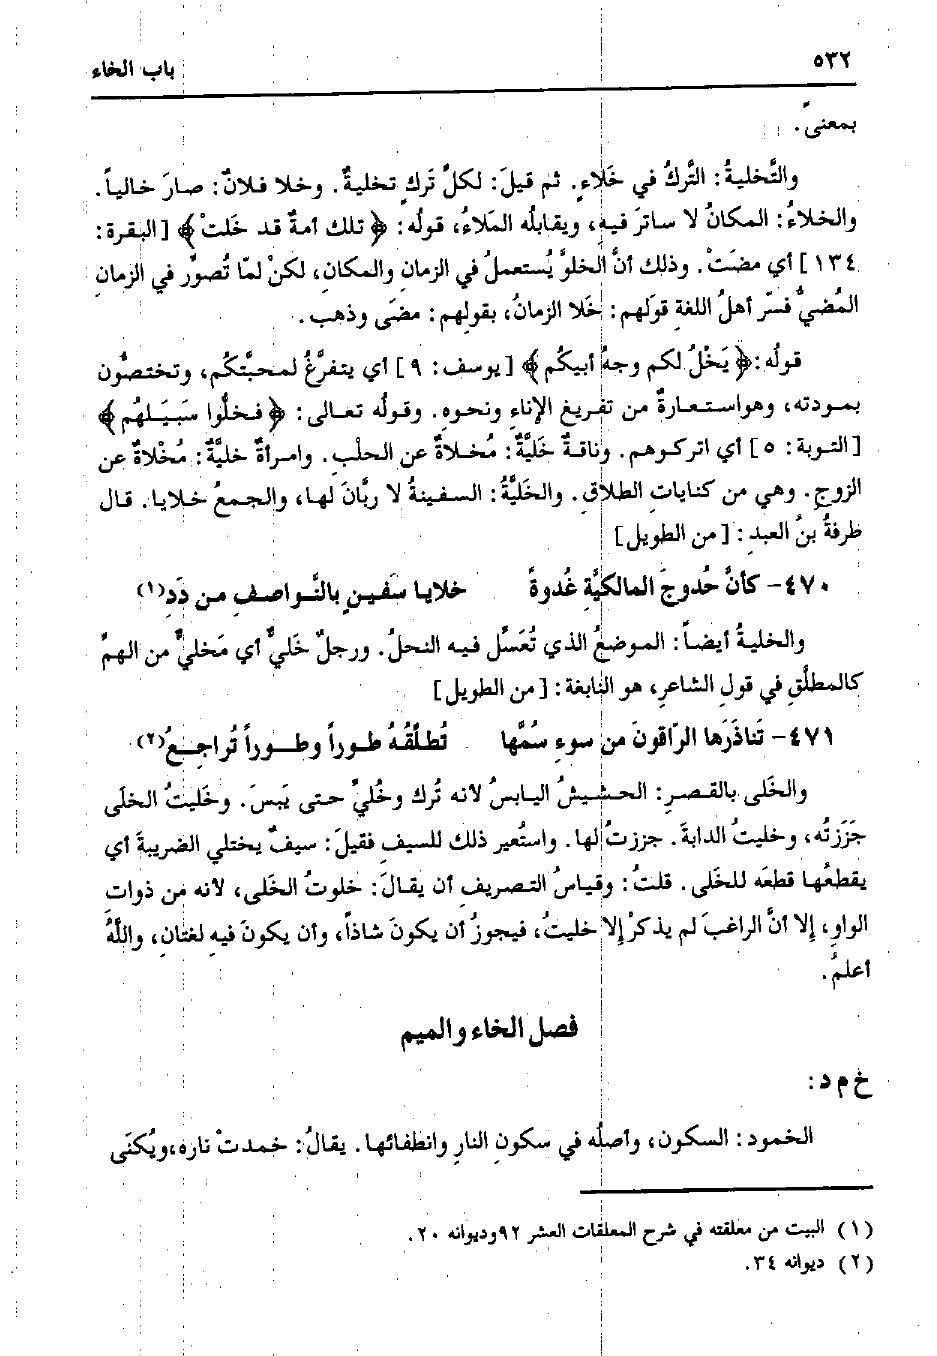 ٥٣٢
باب الخاء
بمعنىً.
والتَّخليةُ: التَّركُ في خَلاءٍ. ثم قيلَ: لكلِّ تَركٍ تخليةٌ. وخلا فلانٌ: صارَ خالياً.
والخلاءُ: المكانُ لا ساترَ فيهِ، ويقابلُه المَلاءُ، قولُه: ﴿تلك أمةٌ قد خَلتْ﴾ [البقرة:
١٣٤] أي مضَتْ. وذلك أنَّ الخلوَّ يُستعملُ في الزمانِ والمكانِ، لكنْ لمّا تُصوِّر في الزمانِ
المُضيُّ فسّر أهلُ اللغةِ قولَهم: خَلا الزمانُ، بقولِهم: مضَى وذهب.
قولُه: ﴿يَخْلُ لكم وجهُ أبيكُم﴾ [يوسف: ٩] أي يتفرَّغُ لمحبَّتكُم، وتختصُّون
بمودته، وهواستعارةٌ من تفريغِ الإناءِ ونحوِه. وقولُه تعالى: ﴿فخلُّوا سَبيَلهُم﴾
[التوبة: ٥] أي اتركوهم. وناقةٌ خَليَّةٌ: مُخلاةٌ عن الحلْبِ. وامرأةٌ خليَّةٌ: مُخْلاةٌ عن
الزوجِ. وهي من كناياتِ الطلاقِ. والخَليَّةُ: السفينةُ لا ربَّانَ لها، والجمعُ خلايا. قال
طرفةُ بنُ العبدِ: [من الطويل]
٤٧٠- كأنَّ حُدوجَ المالكيَّةِ غُدوةً خلايا سَفينٍ بالنَّواصفِ من دَدِ(١)
والخليةُ أيضاً: الموضعُ الذي تُعَسَّل فيه النحلُ. ورجلٌ خَليٌّ أي مَخليٌّ من الهمِّ
كالمطلَّقِ في قولِ الشاعرِ، هو النابغة: [من الطويل]
٤٧١- تَناذَرَها الرّاقونَ من سوءِ سُمِّها تُطلِّقُهُ طوراً وطوراً تُراجعُ(٢)
والخَلى بالقصرِ: الحشيشُ اليابسُ لأنه تُرك وخُليِّ حتى يَبسَ. وخَليتُ الخلَى
جَزَزتُه، وخليتُ الدابةَ. جززتُ لها. واستُعير ذلك للسيفِ فقيلَ: سيفٌ يختلي الضريبةَ أي
يقطعُها قطعَه للخَلى. قلتُ: وقياسُ التصريفِ أن يقالَ: خلوتُ الخَلى، لأنه من ذوات
الواوِ، إلا أنَّ الراغبَ لم يذكرْ إلا خليتُ، فيجوزُ أن يكونَ شاذاً، وأن يكونَ فيهِ لغتانِ، واللَّهُ
أعلمُ.
فصل الخاء والميم
خ م د:
الخمود: السكون، وأصلُه في سكونِ النارِ وانطفائها. يقالُ: خمدتْ ناره،ويُكنَى
(١) البيت من معلقته في شرح المعلقات العشر ٩٢وديوانه ٢٠.
(٢) ديوانه ٣٤.